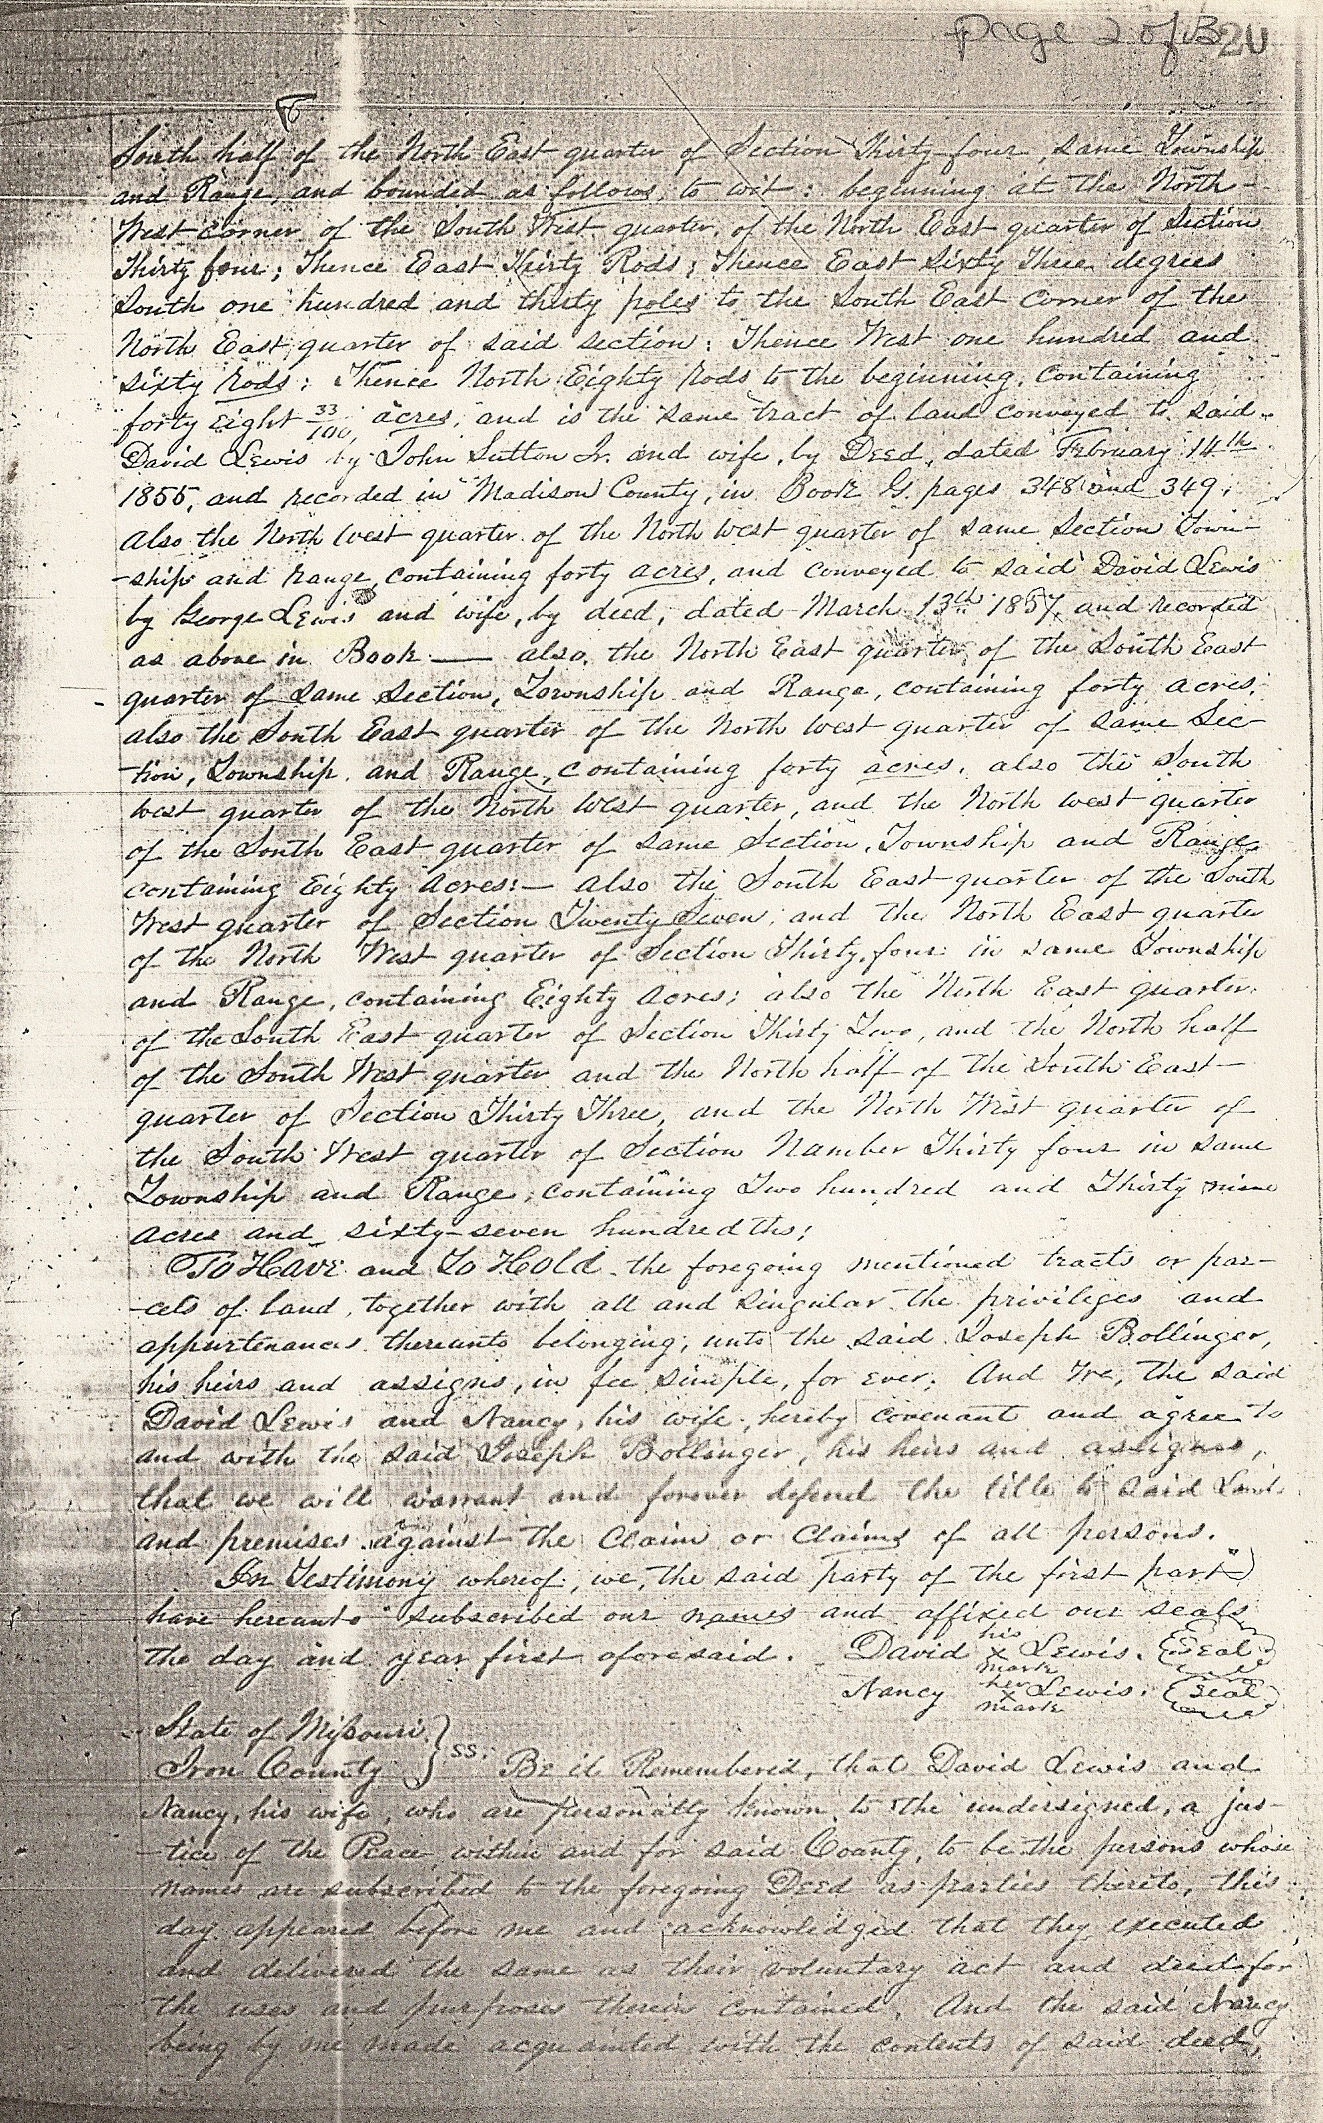 page 2 of 3
20
South half of the North East quarter of Section Thirty four, same Township
and Range, and bounded as follows, to wit: beginning at the North
West corner of the South West quarter, of the North East quarter of Section
Thirty four; Thence East Thirty Rods; Thence East Sixty Three degrees
South one hundred and thirty poles to the South East corner of the
North East quarter of said section; Thence West one hundred and
sixty rods; Thence North Eighty rods to the beginning, containing
forty eight 33/100 acres, and is the same tract of land conveyed to said
David Lewis by John Sutton Jr. and wife, by Deed, dated February 14th
1855, and recorded in Madison County, in Book G. pages 348 and 349;
Also the North West quarter of the North West quarter of same Section Town-
-ship and range, containing forty acres, and conveyed to said David Lewis
by George Lewis and wife, by deed, dated March 13th 1857, and recorded
as above in Book — also, the North East quarter of the South East
quarter of same Section, Township and Range, containing forty acres;
also the South East quarter of the North West quarter of same Sec-
-tion, Township and Range, containing forty acres, also the South
West quarter of the North West quarter, and the North West quarter
of the South East quarter of same Section, Township and Range
containing Eighty Acres:— also the South East quarter of the South
West quarter of Section Twenty Seven, and the North East quarter
of the North West quarter of Section Thirty four in same Township
and Range, containing Eighty Acres; also the North East quarter
of the South East quarter of Section Thirty Two, and the North half
of the South West quarter and the North half of the South East
quarter of Section Thirty Three, and the North West quarter of
the South West quarter of Section Number Thirty four in same
Township and Range, containing Two hundred and Thirty nine
acres and sixty-seven hundredths;
To Have and To Hold the foregoing mentioned tracts or par-
-cels of land, together with all and singular the privileges and
appurtenances thereunto belonging, unto the said Joseph Bollinger,
his heirs and assigns, in fee simple, for ever; And We, the said
David Lewis and Nancy, his wife, hereby covenant and agree to
and with the said Joseph Bollinger, his heirs and assigns,
that we will warrant and forever defend the title to said Land
and premises against the Claim or Claims of all persons.
In Testimony whereof, we, the said party of the first part
have hereunto subscribed our names and affixed our seals
the day and year first aforesaid. David his x mark Lewis. (Seal)
Nancy her x mark Lewis. (Seal)
State of Missouri }
Iron County } ss. Be it Remembered, that David Lewis and
Nancy, his wife, who are personally known to the undersigned, a jus-
-tice of the Peace within and for said County, to be the persons whose
names are subscribed to the foregoing Deed as parties thereto, this
day appeared before me and acknowledged that they executed
and delivered the same as their voluntary act and deed for
the uses and purposes therein contained. And the said Nancy
being by me made acquainted with the contents of said deed,